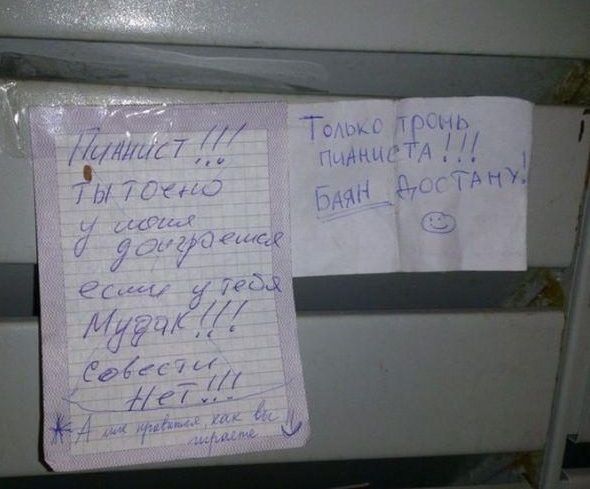 Пианист!!!
ты точно
у меня
доиграешся
если у тебя
Мудак!!!
совести
Нет!!!
А мне нравится, как вы
играете
Только тронь
пианиста!!!
Баян достану!